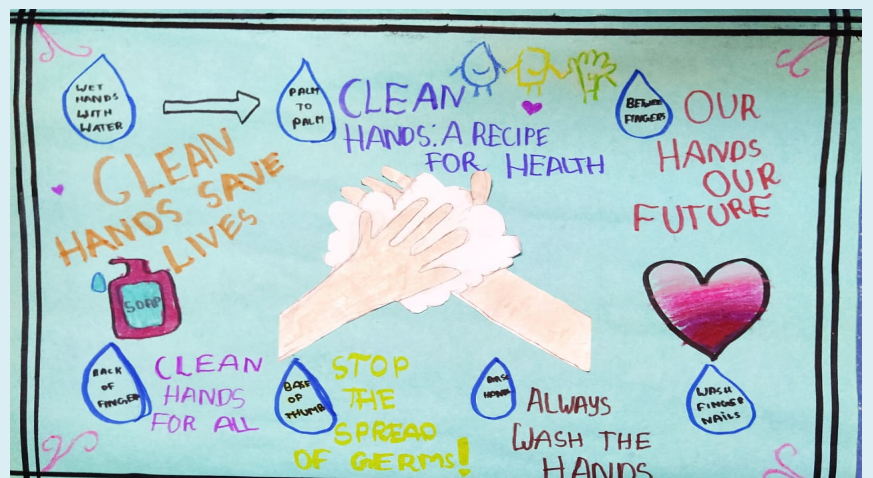 WET
HANDS
WITH
WATER
PALM
TO
PALM
CLEAN
HANDS: A RECIPE
FOR HEALTH
BETWEEN
FINGERS
OUR
HANDS
OUR
FUTURE
CLEAN
HANDS SAVE
LIVES
SOAP
BACK
OF
FINGER
CLEAN
HANDS
FOR ALL
BASE
OF
THUMB
STOP
THE
SPREAD
OF GERMS!
ALWAYS
WASH THE
HANDS
WASH
FINGER
NAILS